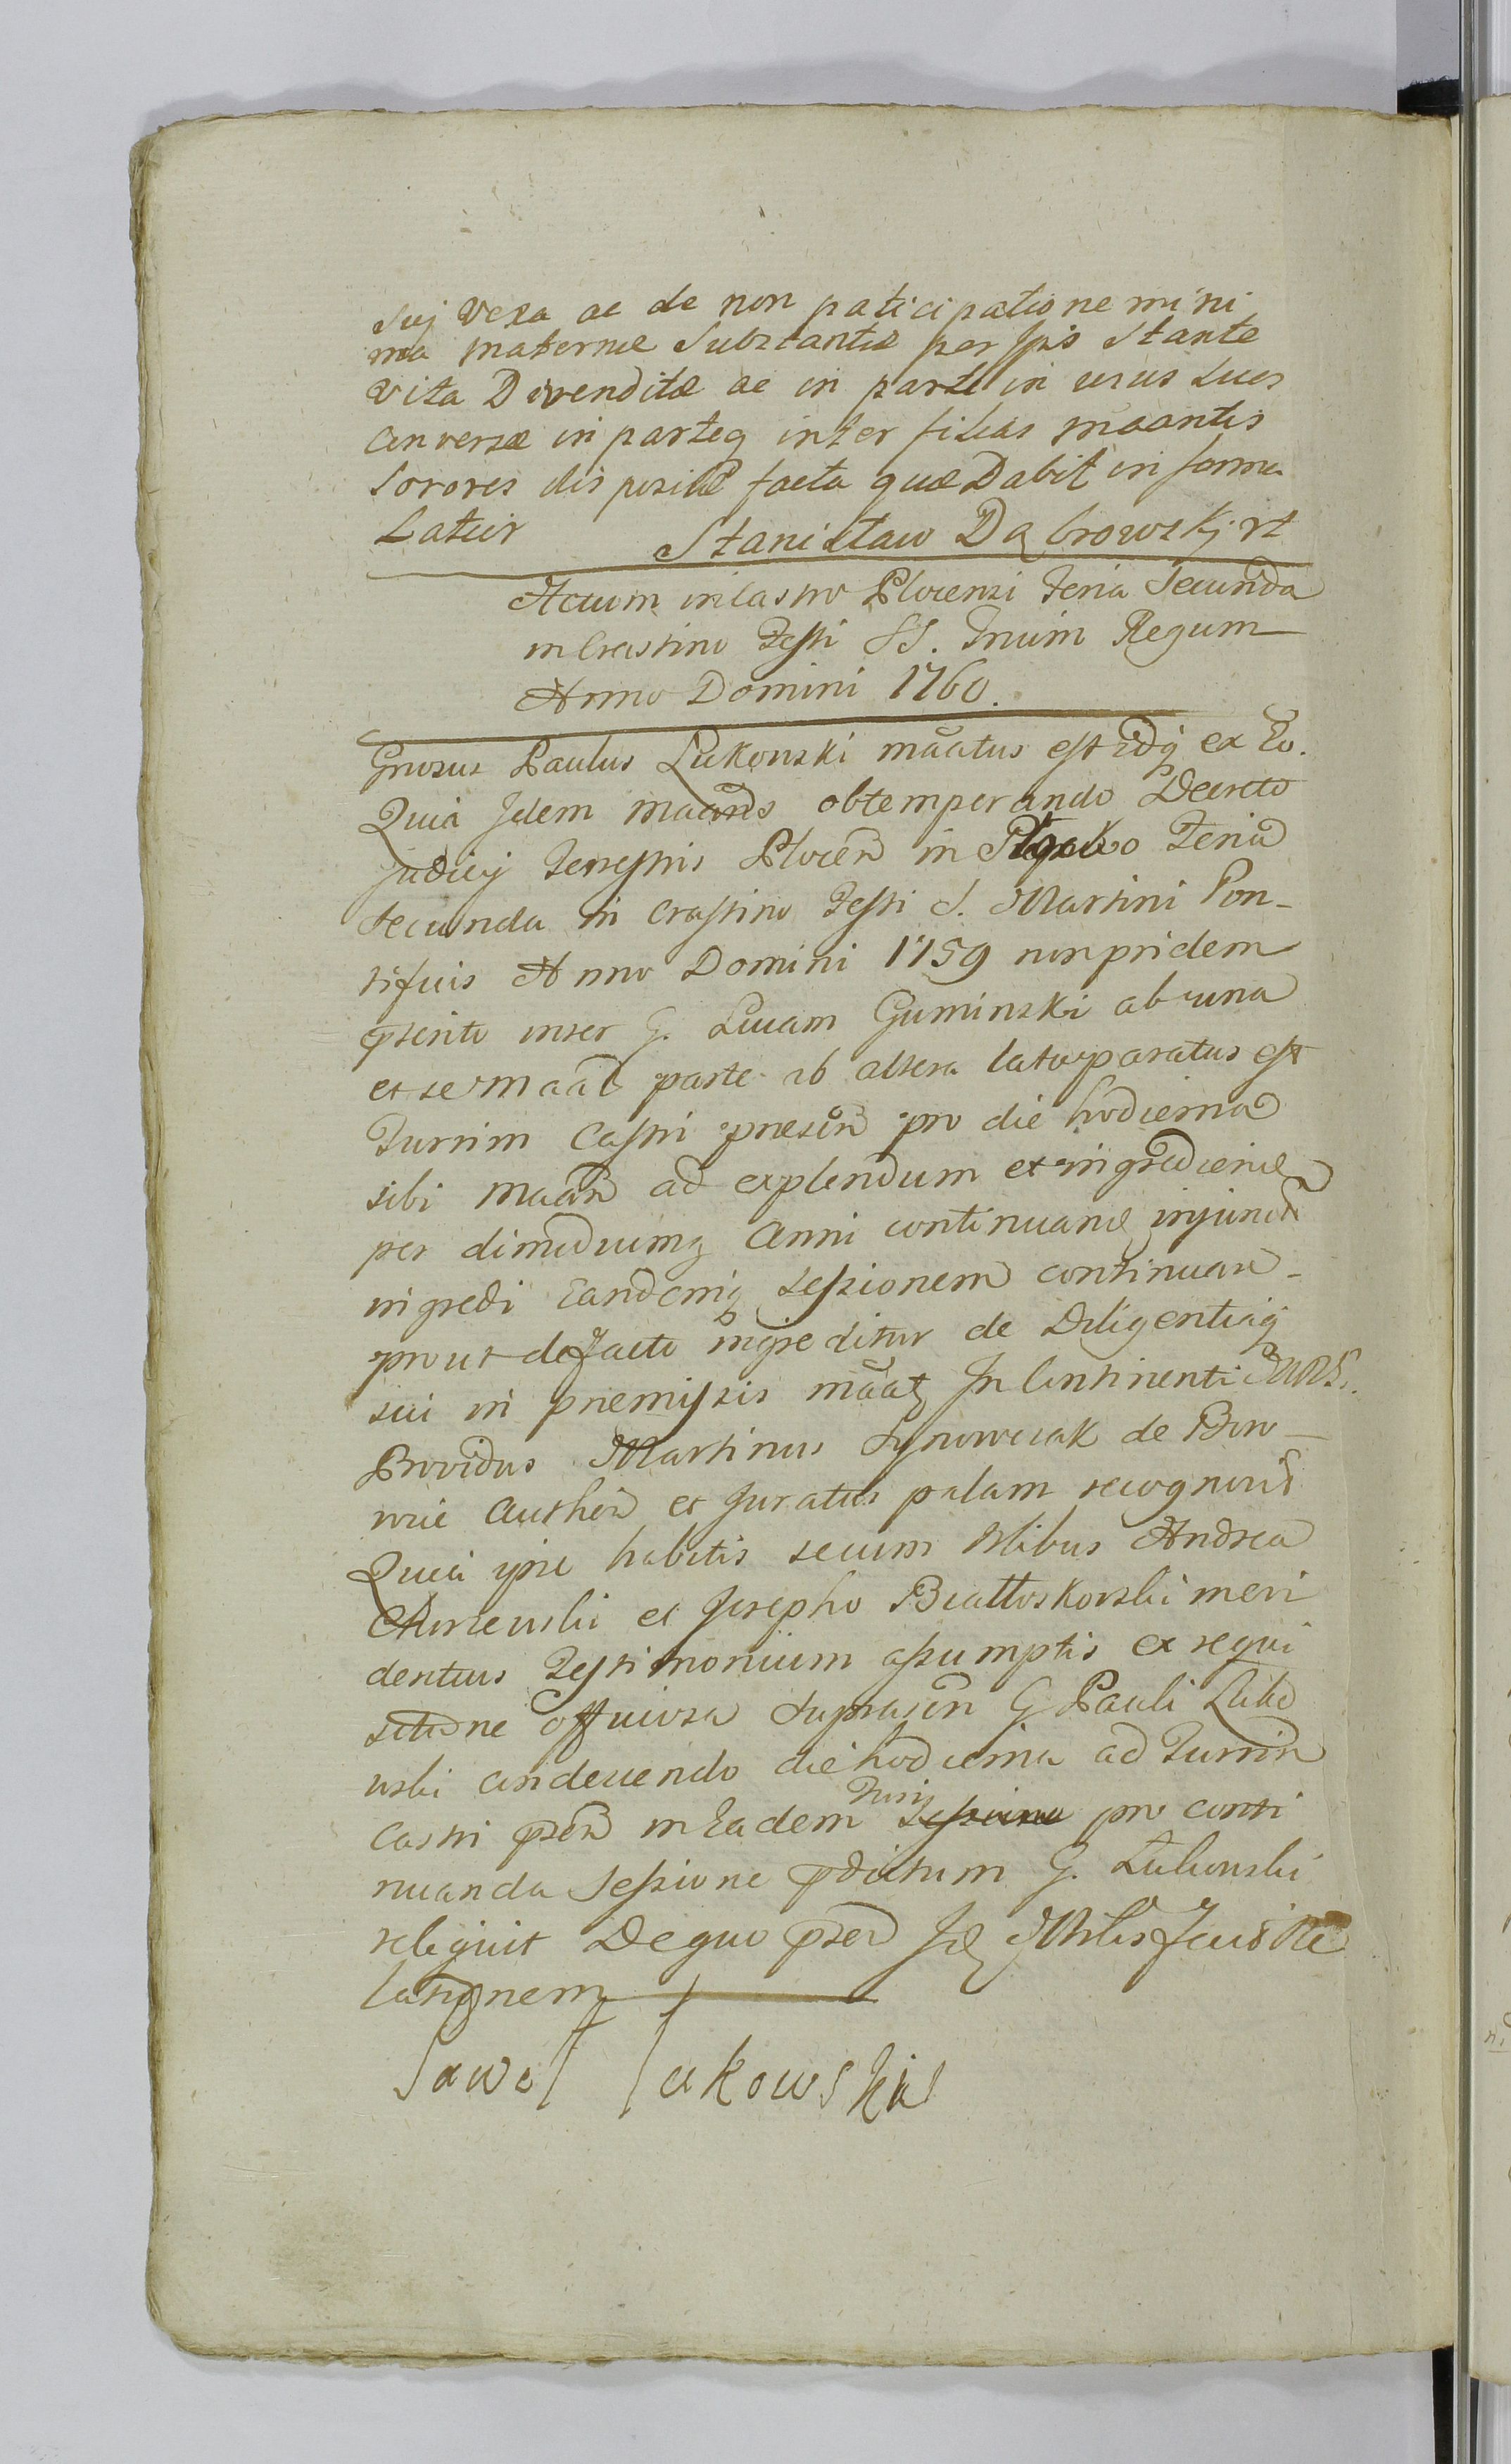 suj Vera ac de non paticipatione mini
ma maternæ Substantiæ per Ipis Stante
Vita Divenditæ ac in parte in usus suos
Conversæ in parteq inter filias mãantis
Sorores dispositæ facta quæ Dabit in forma
Latius Stanisław Dąbrowskj
Actum in Castro Plocensi Feria Secunda
in Crastino Festi SS. Trium Regum
Anno Domini 1760.
Gnosus Paulus Łukowski mãatus est idq ex Eo.
Quia Idem maans obtemperando Decreto
Judicij Terrestris Plocen in Feria
secunda in crastino Festi S. Martini Pon-
tificis Anno Domini 1759 non pridem
pterito inter G. Lucam Guminski ab una
et se maãt parte ab altera lato paratus est
Turrim Castri præsen pro die hodierna
sibi maan ad explendum et ingrediend
per dimidiumq Anni continuand injunct
ingredi Eandemq sessionem continuare
prout de facto ingreditur de Diligentiaq
sui in præmissis mãat In Continenti
Providus Martinus Synowciak de Boro-
wie Authen et Juratus palam recognovit
Quia ipse habitis secum Nlibus Andrea
et Josepho Białłoskorski meri
dentius Testimonium assumptis ex requi
sitione officiosa suprascri G Pauli Łuko
wski condecendo die hodierna ad Turrim
Castri psen in Eadem Turri sessione pro conti
nuanda sessione pdictum G. Łukowski
reliquit De quo psen Id Mlis fecit Re
lationem
Paweł Łukowski